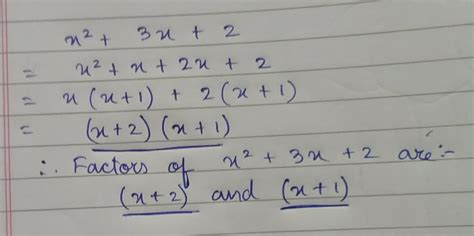 x² + 3x + 2
= x² + x + 2x + 2
= x (x+1) + 2 (x+1)
= (x+2) (x+1)
∴ Factors of x² + 3x + 2 are :-
(x+2) and (x+1)